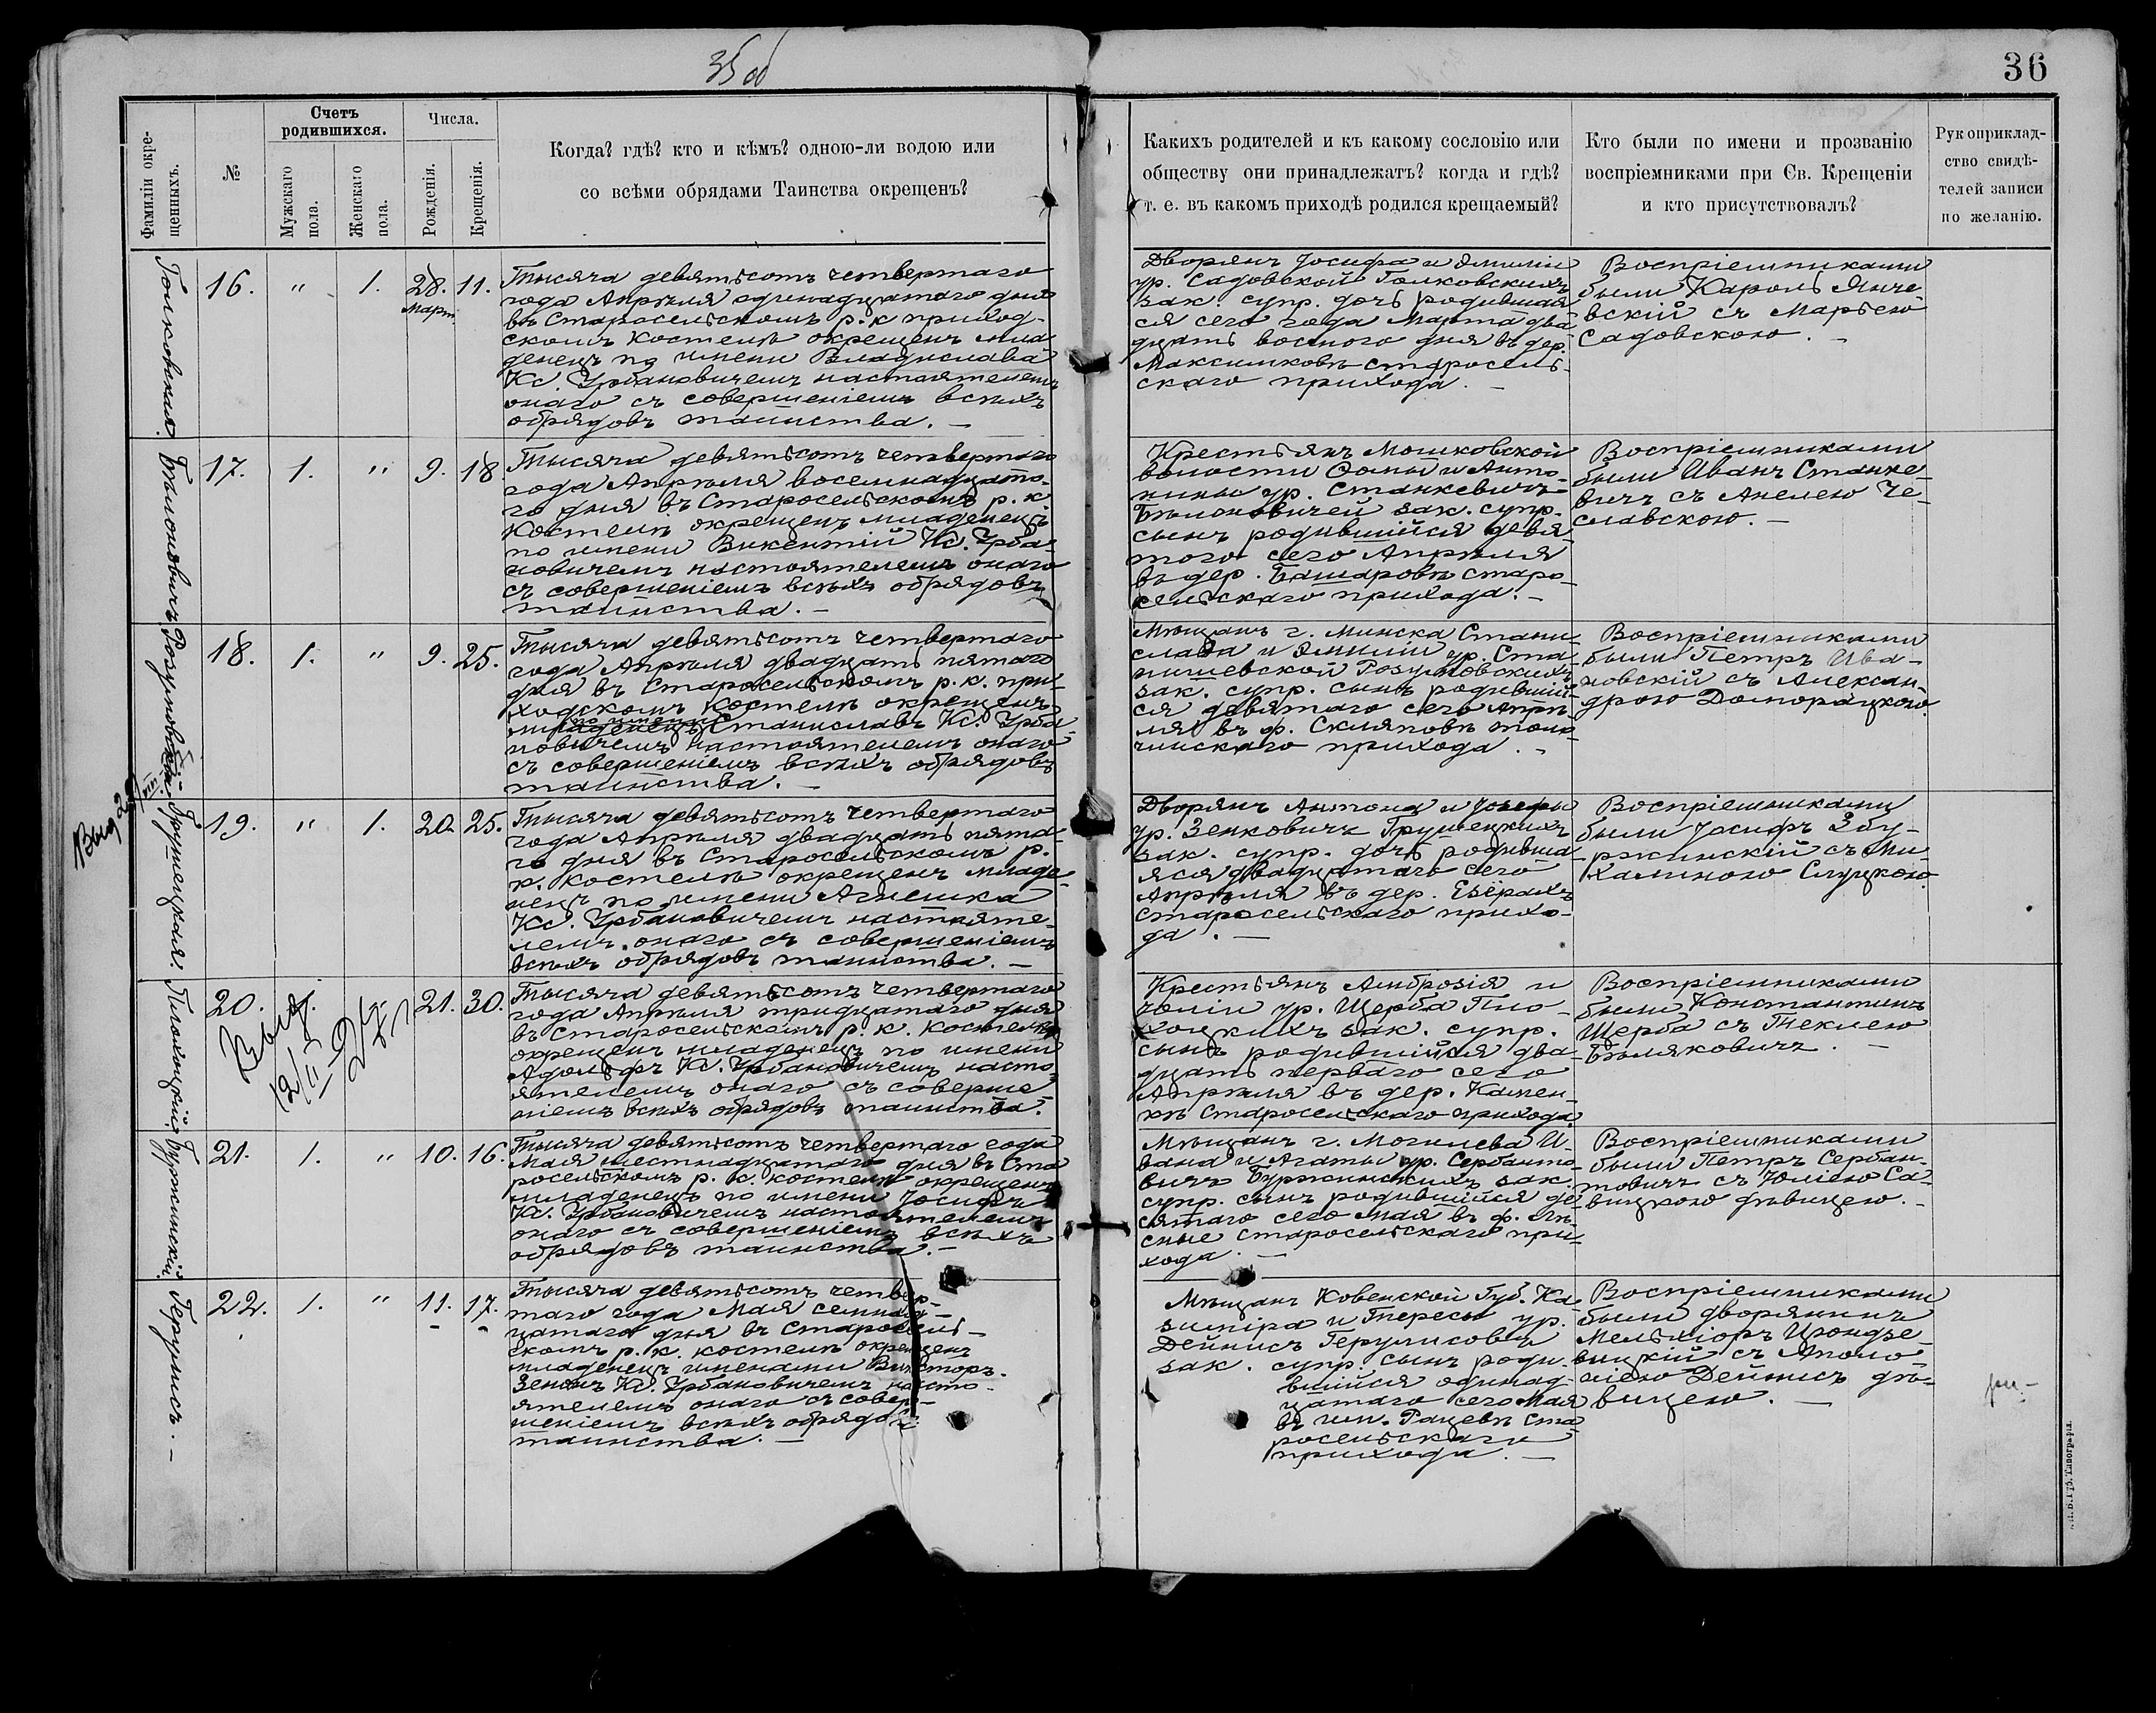 35 об
36
Фамиліи окре-
щенныхъ.
№
Счетъ
родившихся.
Мужскаго
пола.
Женскаго
пола.
Числа.
Рожденія.
Крещенія.
Когда? гдѣ? кто и кѣмъ? одною-ли водою или
со всѣми обрядами Таинства окрещенъ?
Какихъ родителей и къ какому сословію или
обществу они принадлежатъ? когда и гдѣ?
т. е. въ какомъ приходѣ родился крещаемый?
Кто были по имени и прозванію
воспріемниками при Св. Крещеніи
и кто присутствовалъ?
Рукоприклад-
ство свидѣ-
телей записи
по желанію.
Голковская.
16. " 1. 28. 11.
Март.
Тысяча девятьсотъ четвертаго
года Апрѣля одинадцатаго дня
въ Старосельскомъ р. к. приход-
скомъ костелѣ окрещенъ мла
денецъ по имени Владислава
Кс. Урбановичемъ настоятелемъ
онаго съ совершеніемъ всѣхъ
обрядовъ таинства. –
Дворянъ Іосифа и Эмиліи
ур. Садовской Голковскихъ
зак. супр. дочь родившая
ся сего года Марта два
дцать восьмого дня въ дер.
Максимковѣ старосель-
скаго прихода. –
Воспріемниками
были Кароль Янче
вскій съ Марьею
Садовскою. –
Бѣлоновичъ
17. 1. " 9. 18.
Тысяча девятьсотъ четвертаго
года Апрѣля восемнадцата-
го дня въ Старосельскомъ р. к.
костелѣ окрещенъ младенецъ
по имени Викентій Кс. Урба-
новичемъ настоятелемъ онаго
съ совершеніемъ всѣхъ обрядовъ
таинства. –
Крестьянъ Мошковской
волости Ѳомы и Анто-
нины ур. Станкевичъ
Бѣлоновичей зак. супр.
сынъ родившійся девя-
того сего Апрѣля
въ дер. Башаровѣ старо-
сельскаго прихода. –
Воспріемниками
были Иванъ Станке-
вичъ съ Анелею Че-
славскою. –
Розумовскій
18. 1. " 9. 25.
Тысяча девятьсотъ четвертаго
года Апрѣля двадцать пятаго
дня въ Старосельскомъ р. к. при-
ходскомъ костелѣ окрещенъ
по имени
младенецъ Станиславъ Кс. Урба-
новичемъ настоятелемъ онаго
съ совершеніемъ всѣхъ обрядовъ
таинства. –
Мѣщанъ г. Минска Стани-
слава и Эмиліи ур. Ста-
нишевской Розумовскихъ
зак. супр. сынъ родившій-
ся девятаго сего Апрѣ
ля въ ф. Скляповѣ толо-
чинскаго прихода. –
Воспріемниками
были Петръ Ива-
новскій съ Алексан-
дрою Доморацкою.
Грушецкая.
19. " 1. 20. 25.
Тысяча девятьсотъ четвертаго
года Апрѣля двадцать пята-
го дня въ Старосельскомъ р.
к. костелѣ окрещенъ младе-
нецъ по имени Агнешка
Кс. Урбановичемъ настояте-
лемъ онаго съ совершеніемъ
всѣхъ обрядовъ таинства. –
Дворянъ Антона и Іозефы
ур. Зенковичъ Грушецкихъ
зак. супр. дочь родивша-
яся двадцатаго сего
Апрѣля въ дер. Езёрахъ
старосельскаго прихо-
да. –
Воспріемниками
были Іосифъ Збу-
ржинскій съ Ми-
халиною Слуцкою.
Плохоцкій.
20. 1. 21. 30.
Выд.
Тысяча девятьсотъ четвертаго
года Апрѣля тридцатаго дня
въ Старосельскомъ р. к. костелѣ
окрещенъ младенецъ по имени
Адольфъ Кс. Урбановичемъ насто
ятелемъ онаго съ соверше
ніемъ всѣхъ обрядовъ таинства.
Крестьянъ Амброзія и
Юліи ур. Щерба Пло-
хоцкихъ зак. супр.
сынъ родившійся два-
дцать перваго сего
Апрѣля въ дер. Камен-
кѣ старосельскаго прихода.
Воспріемниками
были Константинъ
Щерба съ Теклею
Бѣляковичъ. –
Буржинскій.
21. 1. " 10. 16.
Тысяча девятьсотъ четвертаго года
Мая шестнадцатаго дня въ Ста
росельскомъ р. к. костелѣ окрещенъ
младенецъ по имени Іосифъ
Кс. Урбановичемъ настоятелемъ
онаго съ совершеніемъ всѣхъ
обрядовъ таинства. –
Мѣщанъ г. Могилева И-
вана и Агаты ур. Сербанто-
вичъ Буржинскихъ зак.
супр. сынъ родившійся де-
сятаго сего Мая въ ф. Лѣ-
сные старосельскаго при-
хода. –
Воспріемниками
были Петръ Сербан-
товичъ съ Юліею Са-
вицкою дѣвицею. –
Герулисъ. –
22. 1. " 11. 17.
Тысяча девятьсотъ четвер-
таго года Мая семнад-
цатаго дня въ Старосель-
скомъ р. к. костелѣ окрещенъ
младенецъ именами Викторъ-
Зенонъ Кс. Урбановичемъ насто-
ятелемъ онаго съ совер-
шеніемъ всѣхъ обрядовъ
таинства. –
Мѣщанъ Ковенской Губ. Ка-
зиміра и Тересы ур.
Дейнисъ Герулисовъ
зак. супр. сынъ роди-
вшійся одинад-
цатаго сего Мая
въ им. Рацевѣ ста-
росельскаго
прихода. –
Воспріемниками
были дворянинъ
Мельхіоръ Црондзе-
вицкій съ Аполо-
ніею Дейнисъ дѣ-
вицею. –